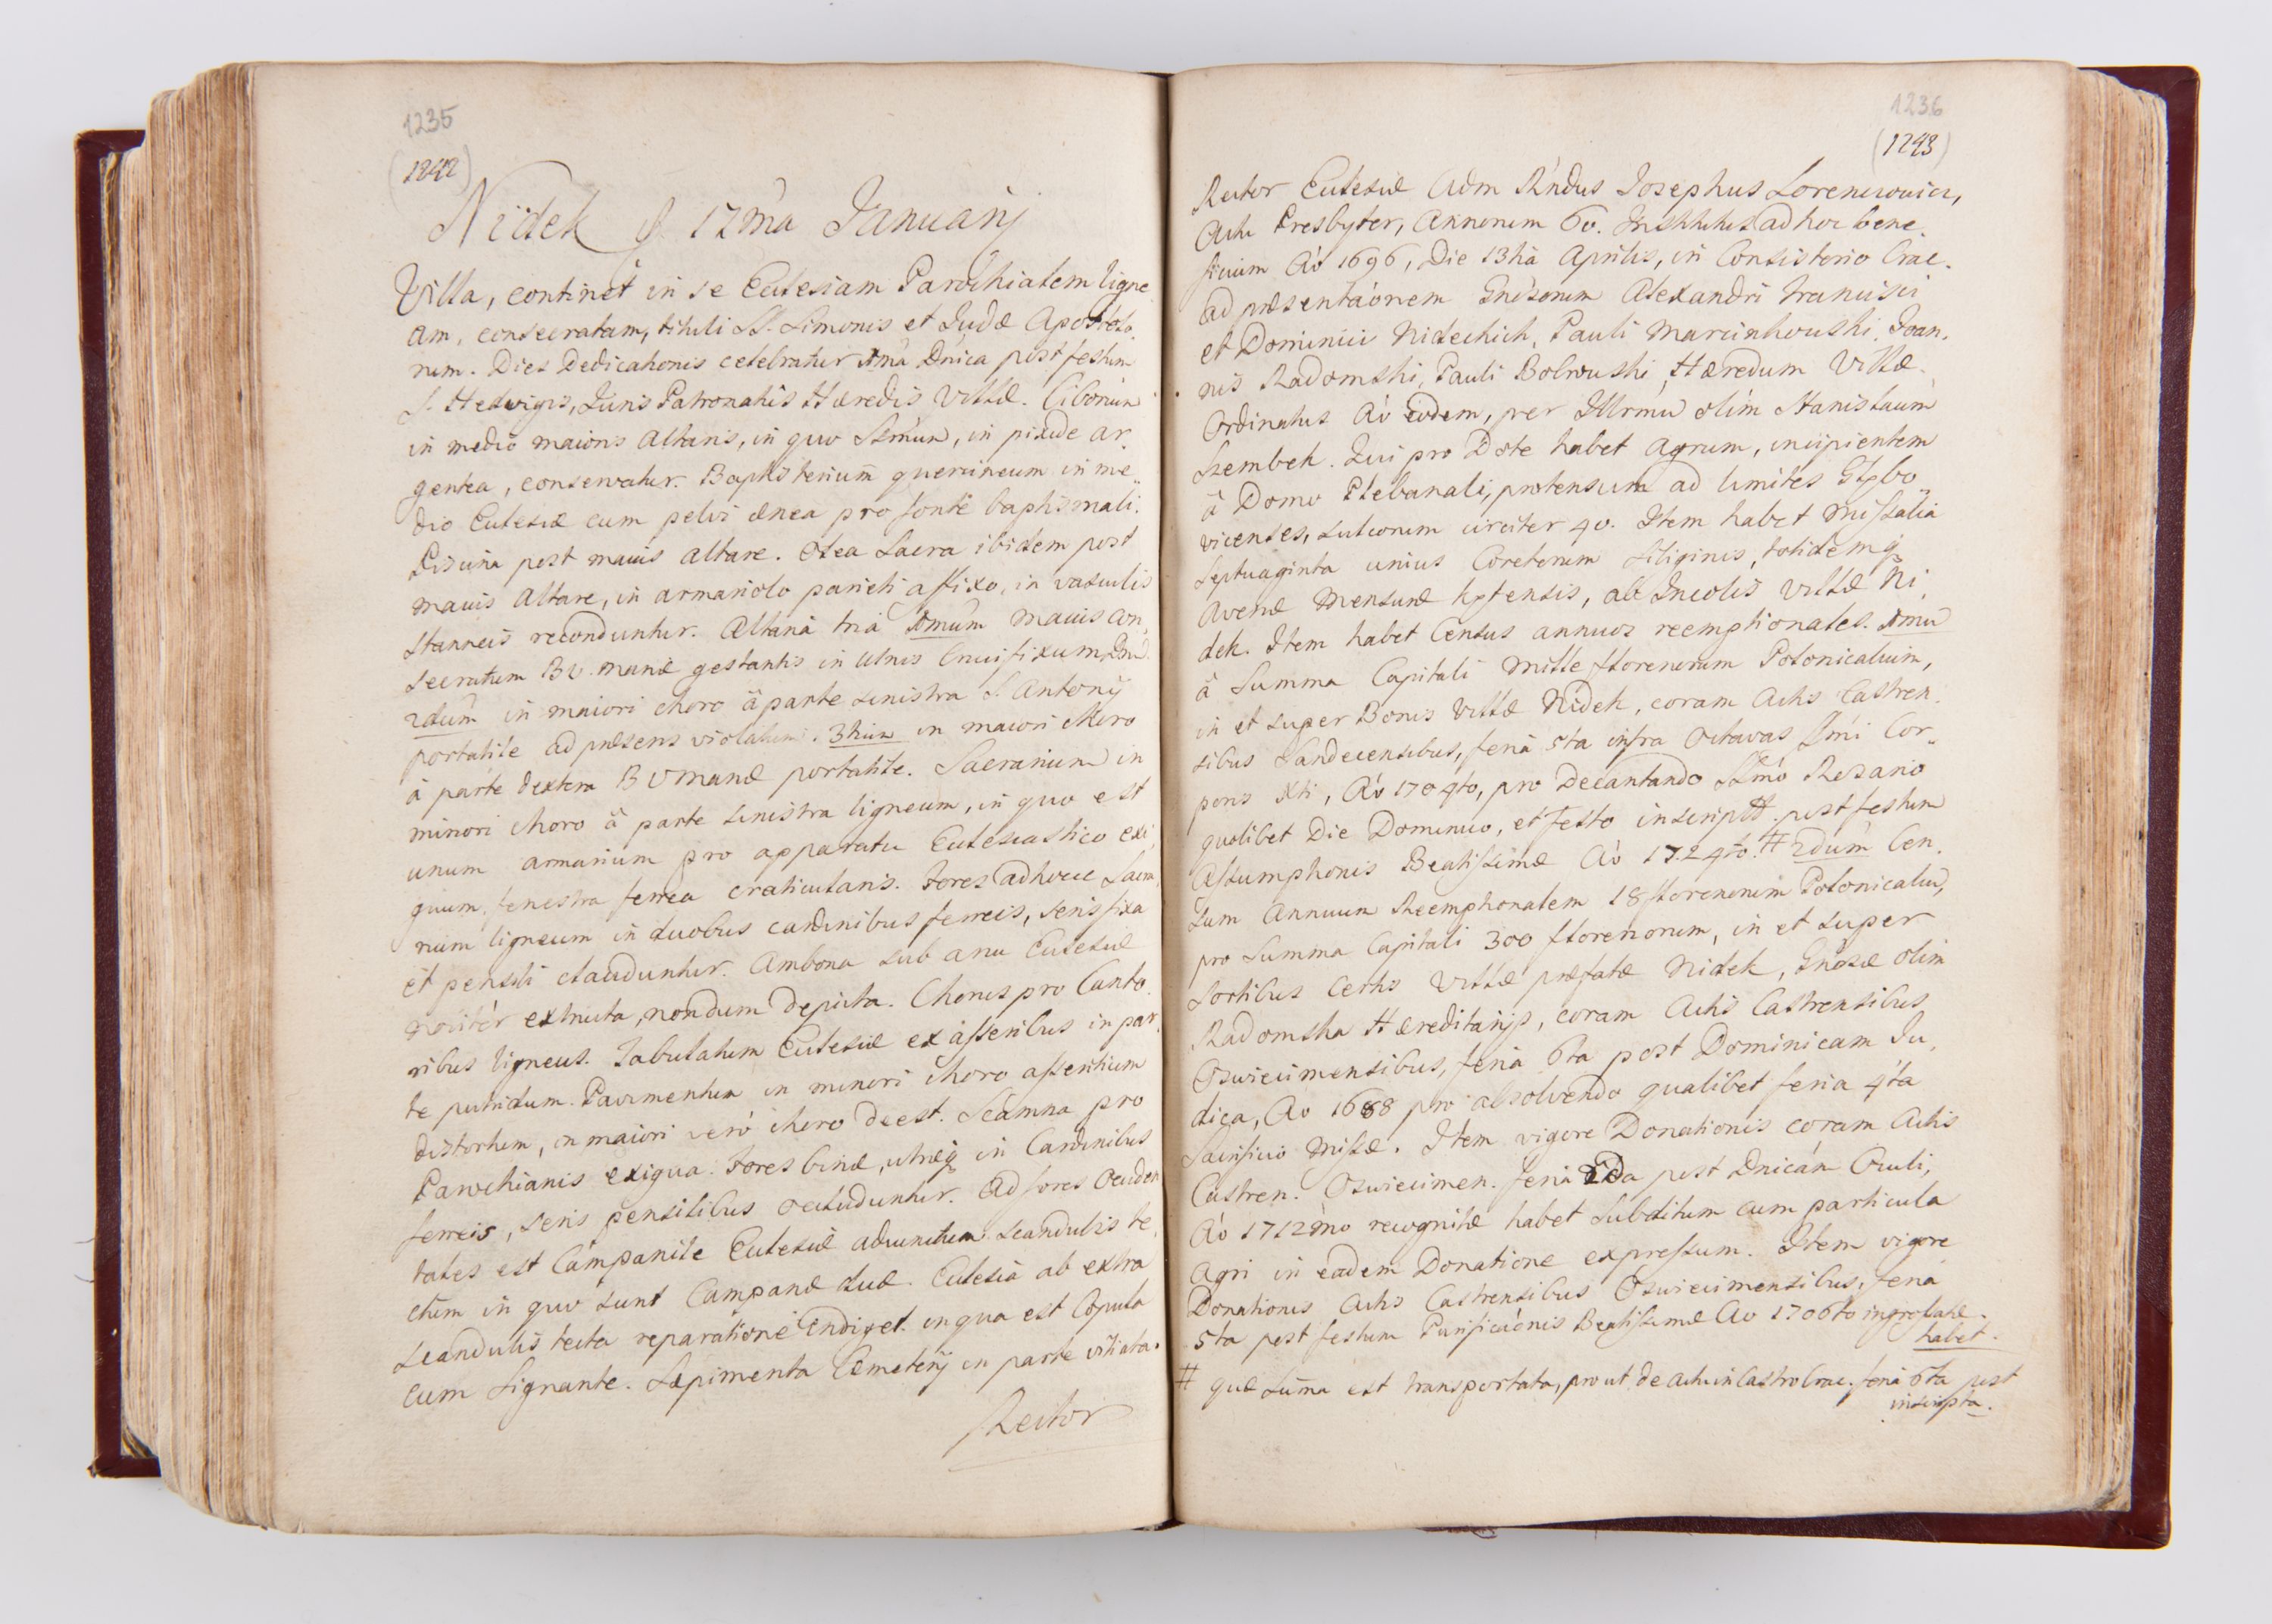 1235
(1242)
Nidek d. 12ma Januarij
Villa, continet in se Ecclesiam Parochialem ligne
am, consecratam, tituli SS. Simonis et Judæ Apostolo
rum. Dies Dedicationis celebratur 1ma Dnica post festum
S. Hedvigis, Juris Patronatus Hæredis Villæ. Ciborium
in medio maioris Altaris, in quo SSmum, in pixide ar
gentea, conservatur. Baptisterium quercineum in me„
dio Ecclesiæ cum pelvi ænea pro fonte baptismali.
Piscina post maius altare. Olea Sacra ibidem post
maius Altare, in armariolo parieti affixo, in vasculis
stanneis reconduntur. Altaria tria 1mum maius con„
secratum BV. Mariæ gestantis in ulnis Crucifixum Dnum
2dum in maiori choro à parte sinistra S. Antonij
portatile ad præsens violatum. 3tium in maiori choro
à parte dextera BVMariæ portatile. Sacrarium in
minori choro à parte sinistra ligneum, in quo est
unum armarium pro apparatu Ecclesiastico exi„
guum, fenestra ferrea craticularis. Fores ad hocce Sacra
rium ligneum in duobus cardinibus ferreis, seris fixa
et pensili clauduntur. Ambona sub arcu Ecclesiæ
noviter extructa, nondum depicta. Chorus pro Canto
ribus ligneus. Tabulatum Ecclesiæ ex asseribus in par„
te putridum. Pavimentum in minori choro asseritium
distortum, in maiori verò choro deest. Scamna pro
Parochianis exigua. Fores binæ, utræq in Cardinibus
ferreis, seris pensilibus occluduntur. Ad fores occiden
tales est Campanile Ecclesiæ adiunctum scandulis te„
ctum in quo sunt Campanæ duæ. Ecclesia ab extra
scandulis tecta reparatione indiget. in qua est Copula
cum Signante. Sæpimenta Cæmeterij in parte vitiata.
Rector
1236
(1243)
Rector Ecclesiæ Adm Rndus Josephus Lorencowicz,
Actu Presbyter, Annorum 60. Institutus ad hoc bene„
ficium Aò 1696, Die 13tia Aprilis, in Consistorio Crac.
ad præsentaònem Gnosorum Alexandri Francisci
et Dominici Nideckich, Pauli Marcinkowski, Joan„
nis Radomski, Pauli Bobrowski, Hæredum Villæ.
Ordinatus Aò eodem, per Illrmu olim Stanislaum
Szembek. Qui pro Dote habet Agrum, incipientem
à Domo Plebanali, protensum ad limites Głębo„
vicenses, sulcorum circiter 40. Item habet Missalia
Septuaginta unius Coretorum siliginis, totidemq
Avenæ Mensuræ Kętensis, ab Incolis Villæ Ni„
dek. Item habet Census annuos reemptionales. 1mu
à Summa Capitali Mille florenorum Polonicalium,
in et super Bonis Villæ Nidek, coram Actis Castren„
sibus Sandecensibus, feria 5ta infra Octavas SSmi Cor„
poris Xti, Aò 1704to, pro Decantando SSmo Rosario
quolibet Die Dominico, et festo inscript # post festum
Assumptionis Beatissimæ Aò 1724to. # 2dum Cen„
sum Annuum Reemptionalem 18 florenorum Polonicaliu,
pro Summa Capitali 300 florenorum, in et super
sortibus certis Villæ præfatæ Nidek, Gnosæ olim
Radomska Hæreditarijs, coram Actis Castrensibus
Oswiecimensibus, feria 6ta post Dominicam Ju„
dica, Ao 1688 pro absolvendo qualibet feria 4ta
Sacrificio Missæ. Item vigore Donationis coram Actis
Castren. Oswiecimen. feria 2da post Dnicam Oculi,
Aò 1712mo recognitæ habet subditum cum particula
Agri in eadem Donatione expressum. Item vigore
Donationis Actis Castrensibus Oswiecimensibus, feria
5ta post festum Purificaònis Beatissimæ Ao 1706to ingrossatæ.
habet.
# quæ Suma est transportata, prout de actu in Castro Crac. feria 6ta post
inscripta.